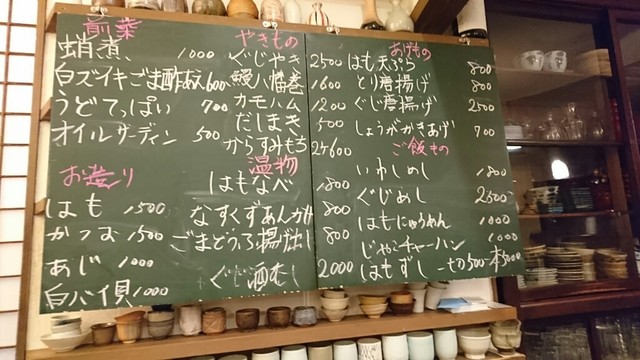 前菜
蛸煮 1000
白ズイキごま酢あえ 600
うどてっぱい 700
オイルサーディン 500
お造り
はも 1500
かつお 1500
あじ 1000
白バイ貝 1000
やきもの
ぐじやき 2500
鰻八幡巻 1600
カモハム 1200
だしまき 500
からすみもち 2ケ600
温物
はもなべ 1800
なすくずあんかけ 800
ごまどうふ揚げ出し 800
ぐじ酒むし 2000
あげもの
はも天ぷら 800
とり唐揚げ 800
ぐじ唐揚げ 2500
しょうがかきあげ 700
ご飯もの
いわしめし 1800
ぐじめし 2500
はもにゅうめん 1000
じゃこチャーハン 1000
はもずし 一切500 一本